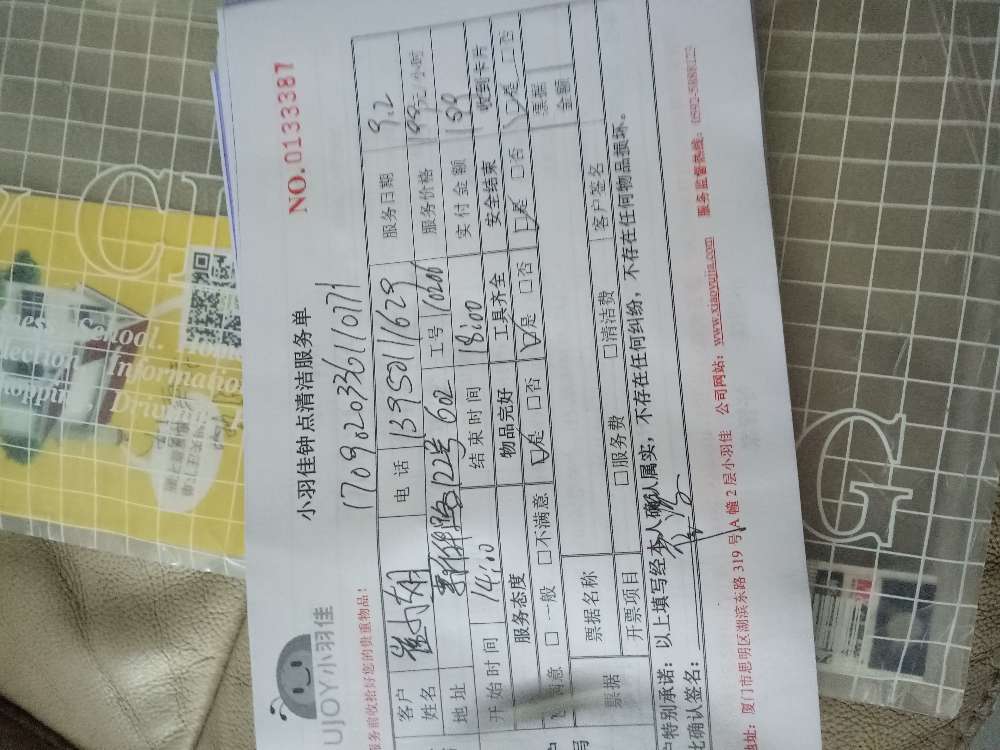 UJOY小羽佳
小羽佳钟点清洁服务单
NO.0133387
服务前收拾好您的贵重物品!
170920336110771
客户姓名
电话 13950111629
服务日期 9.2
地址
122号602
工号 10200
服务价格
小时
开始时间 14:00
结束时间 18:00
实付金额 199
服务态度
物品完好
工具齐全
安全结束
收到卡片
满意 □一般 □不满意
是 □否
是 □否
是 □否
是 □否
票据
票据名称
票据金额
开票项目
□服务费
□清洁费
客户签名
户特别承诺：以上填写经本人确认属实，不存在任何纠纷，不存在任何物品损坏。
比确认签名：
地址：厦门市思明区湖滨东路 319 号 A 幢 2 层小羽佳
公司网站：www.xiaoyujia.com
服务监督热线：0592-5888123
School.
Information